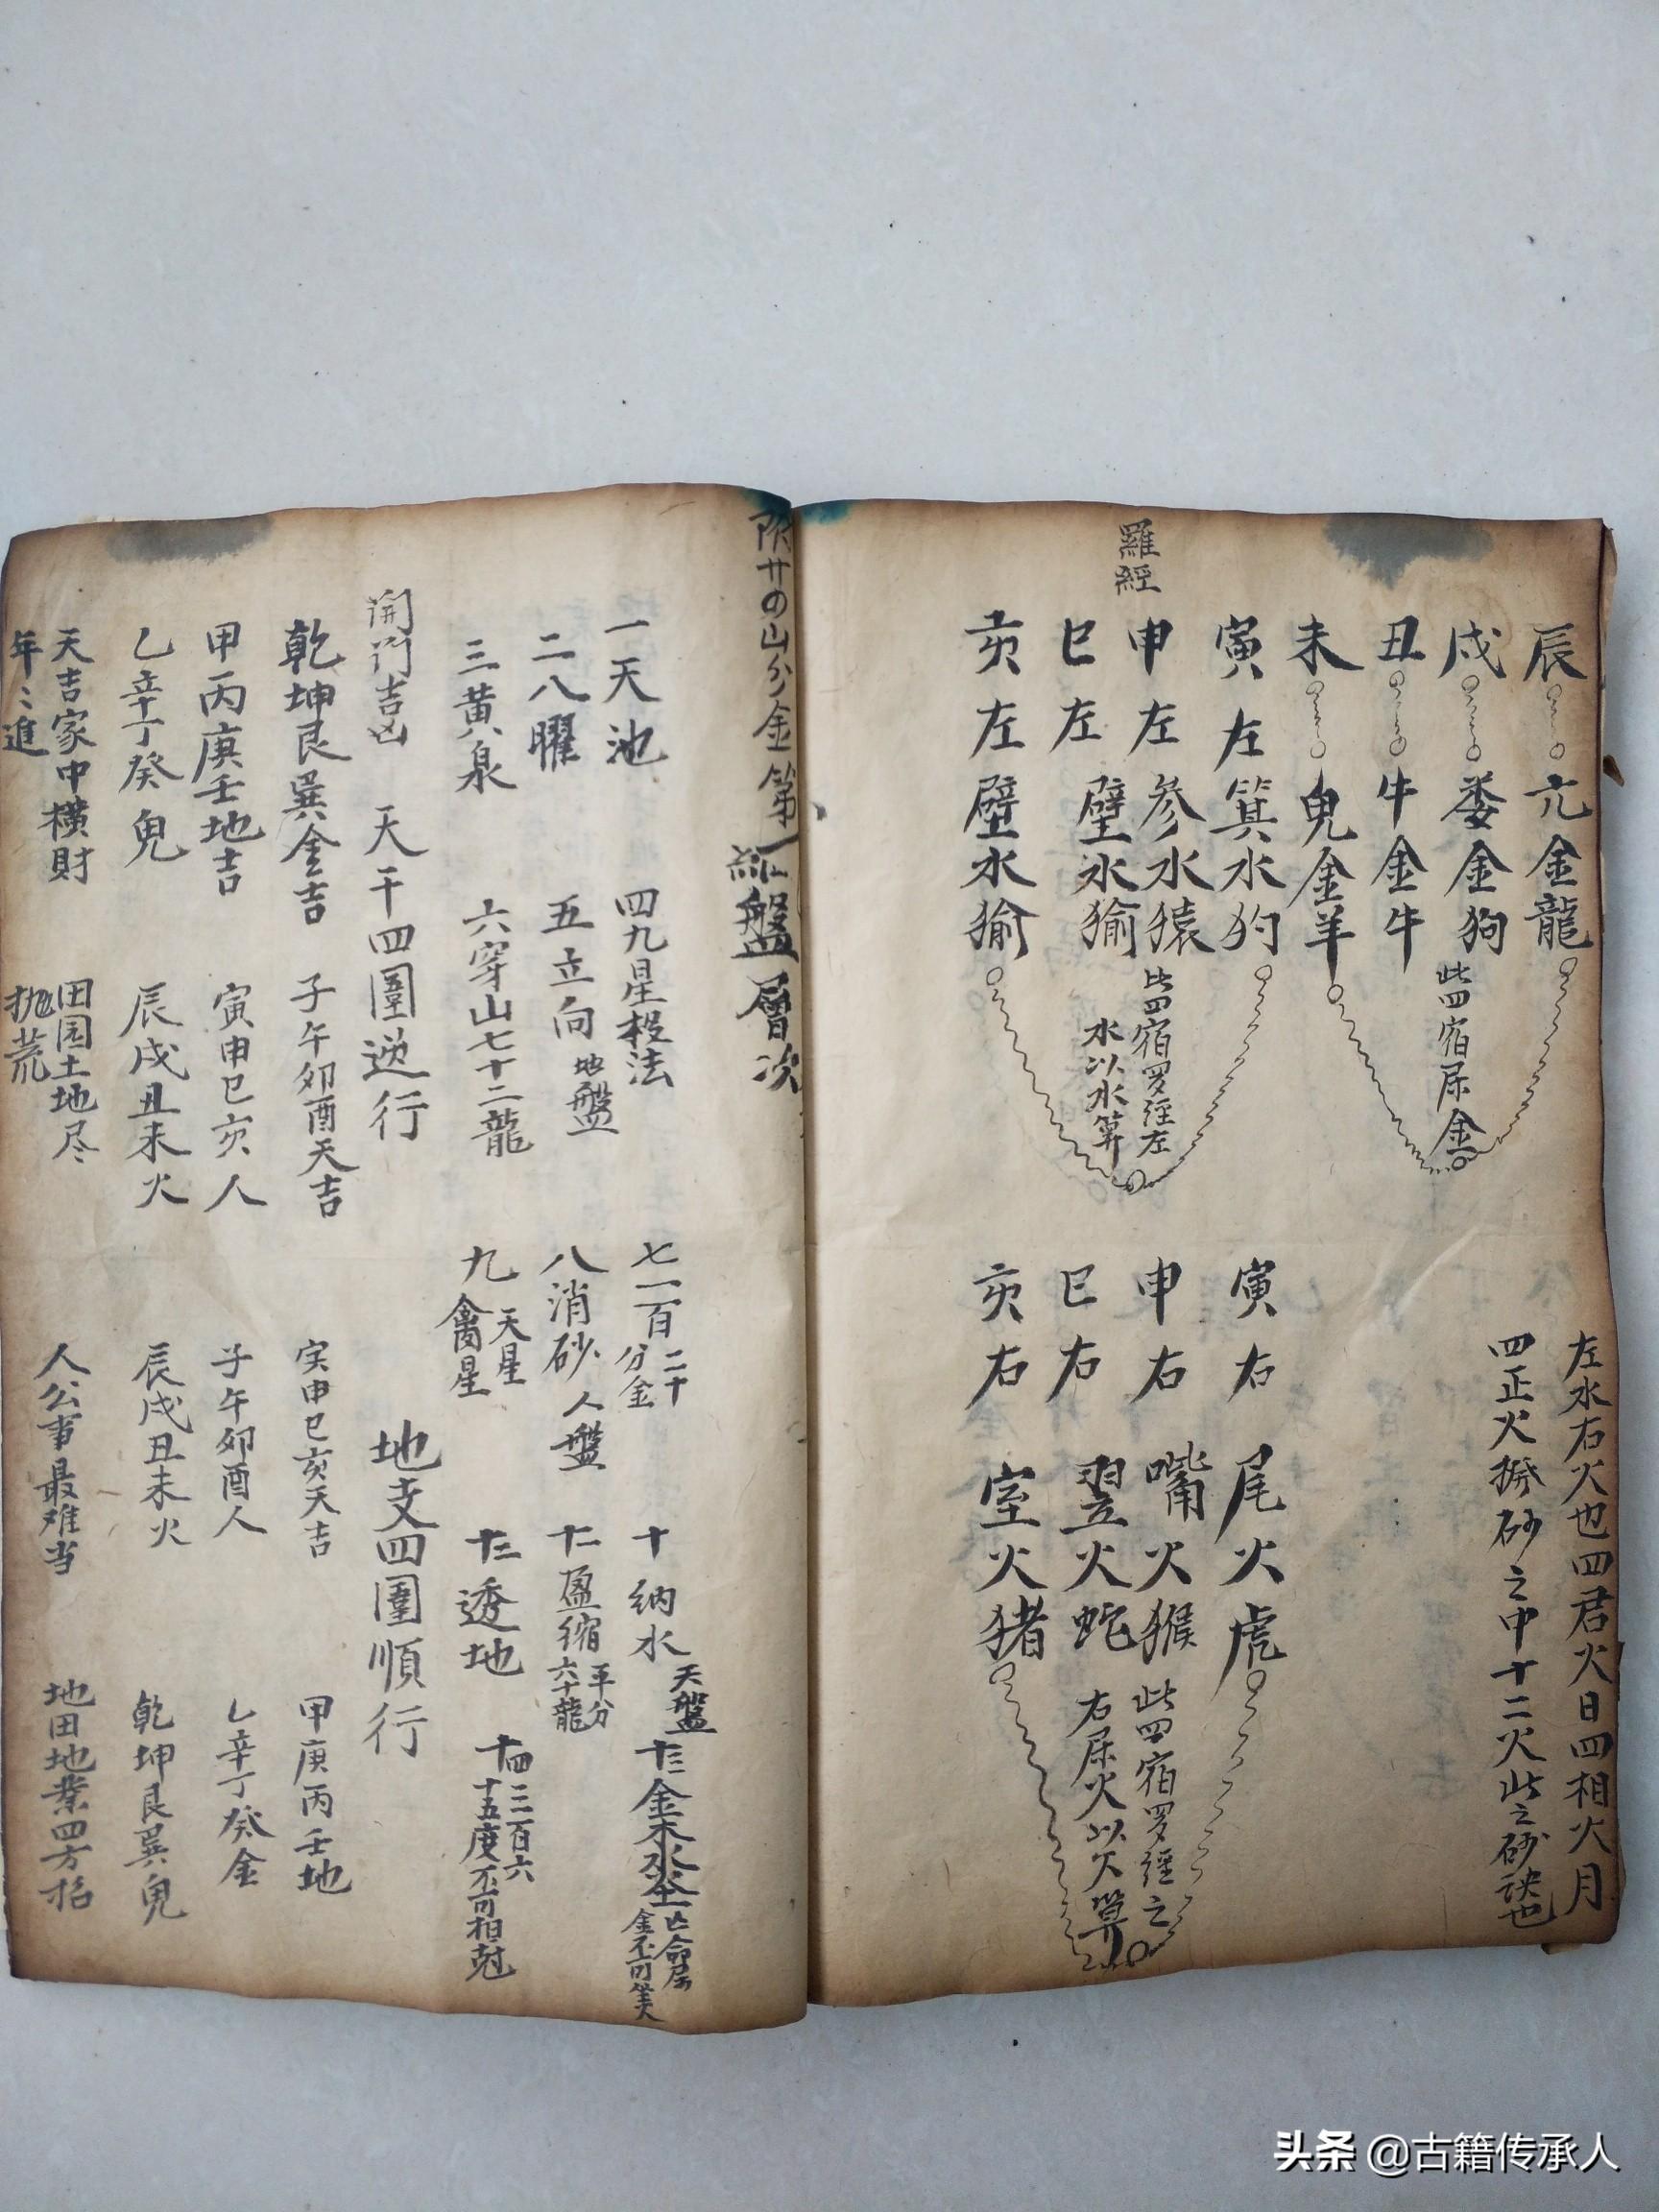 羅經
辰 亢金龍
戌 娄金狗 此四宿屬金
丑 牛金牛
未 鬼金羊
寅左 箕水豹
申左 参水猿 此四宿罗经左
水以水算
巳左 壁水㺄
亥左 壁水㺄
左水右火也四君火日四相火月
四正火撥砂之中十二火此之砂訣也
寅右 尾火虎
申右 嘴火猴 此四宿罗經之
右屬火以火算
巳右 翌火蛇
亥右 室火猪
附廿四山分金第一
羅盤層次
一天池 四九星杀法 七一百二十分金 十納水天盤 十三金木水金
二八曜 五立向地盤 八消砂人盤 十一盈缩六十龍平分
三黄泉 六穿山七十二龍 九天星禽星 十二透地 十四三百六十五度不可相尅
開門吉凶 天干四圍逆行 地支四圍順行
乾坤艮巽金吉 子午卯酉天吉 寅申巳亥天吉 甲庚丙壬地
甲丙庚壬地吉 寅申巳亥人 子午卯酉人 乙辛丁癸金
乙辛丁癸鬼 辰戌丑未火 辰戌丑未火 乾坤艮巽鬼
天吉家中横財 田园土地尽 人公事最难当 地田地業四方招
年〻進 抛荒
头条 @古籍传承人